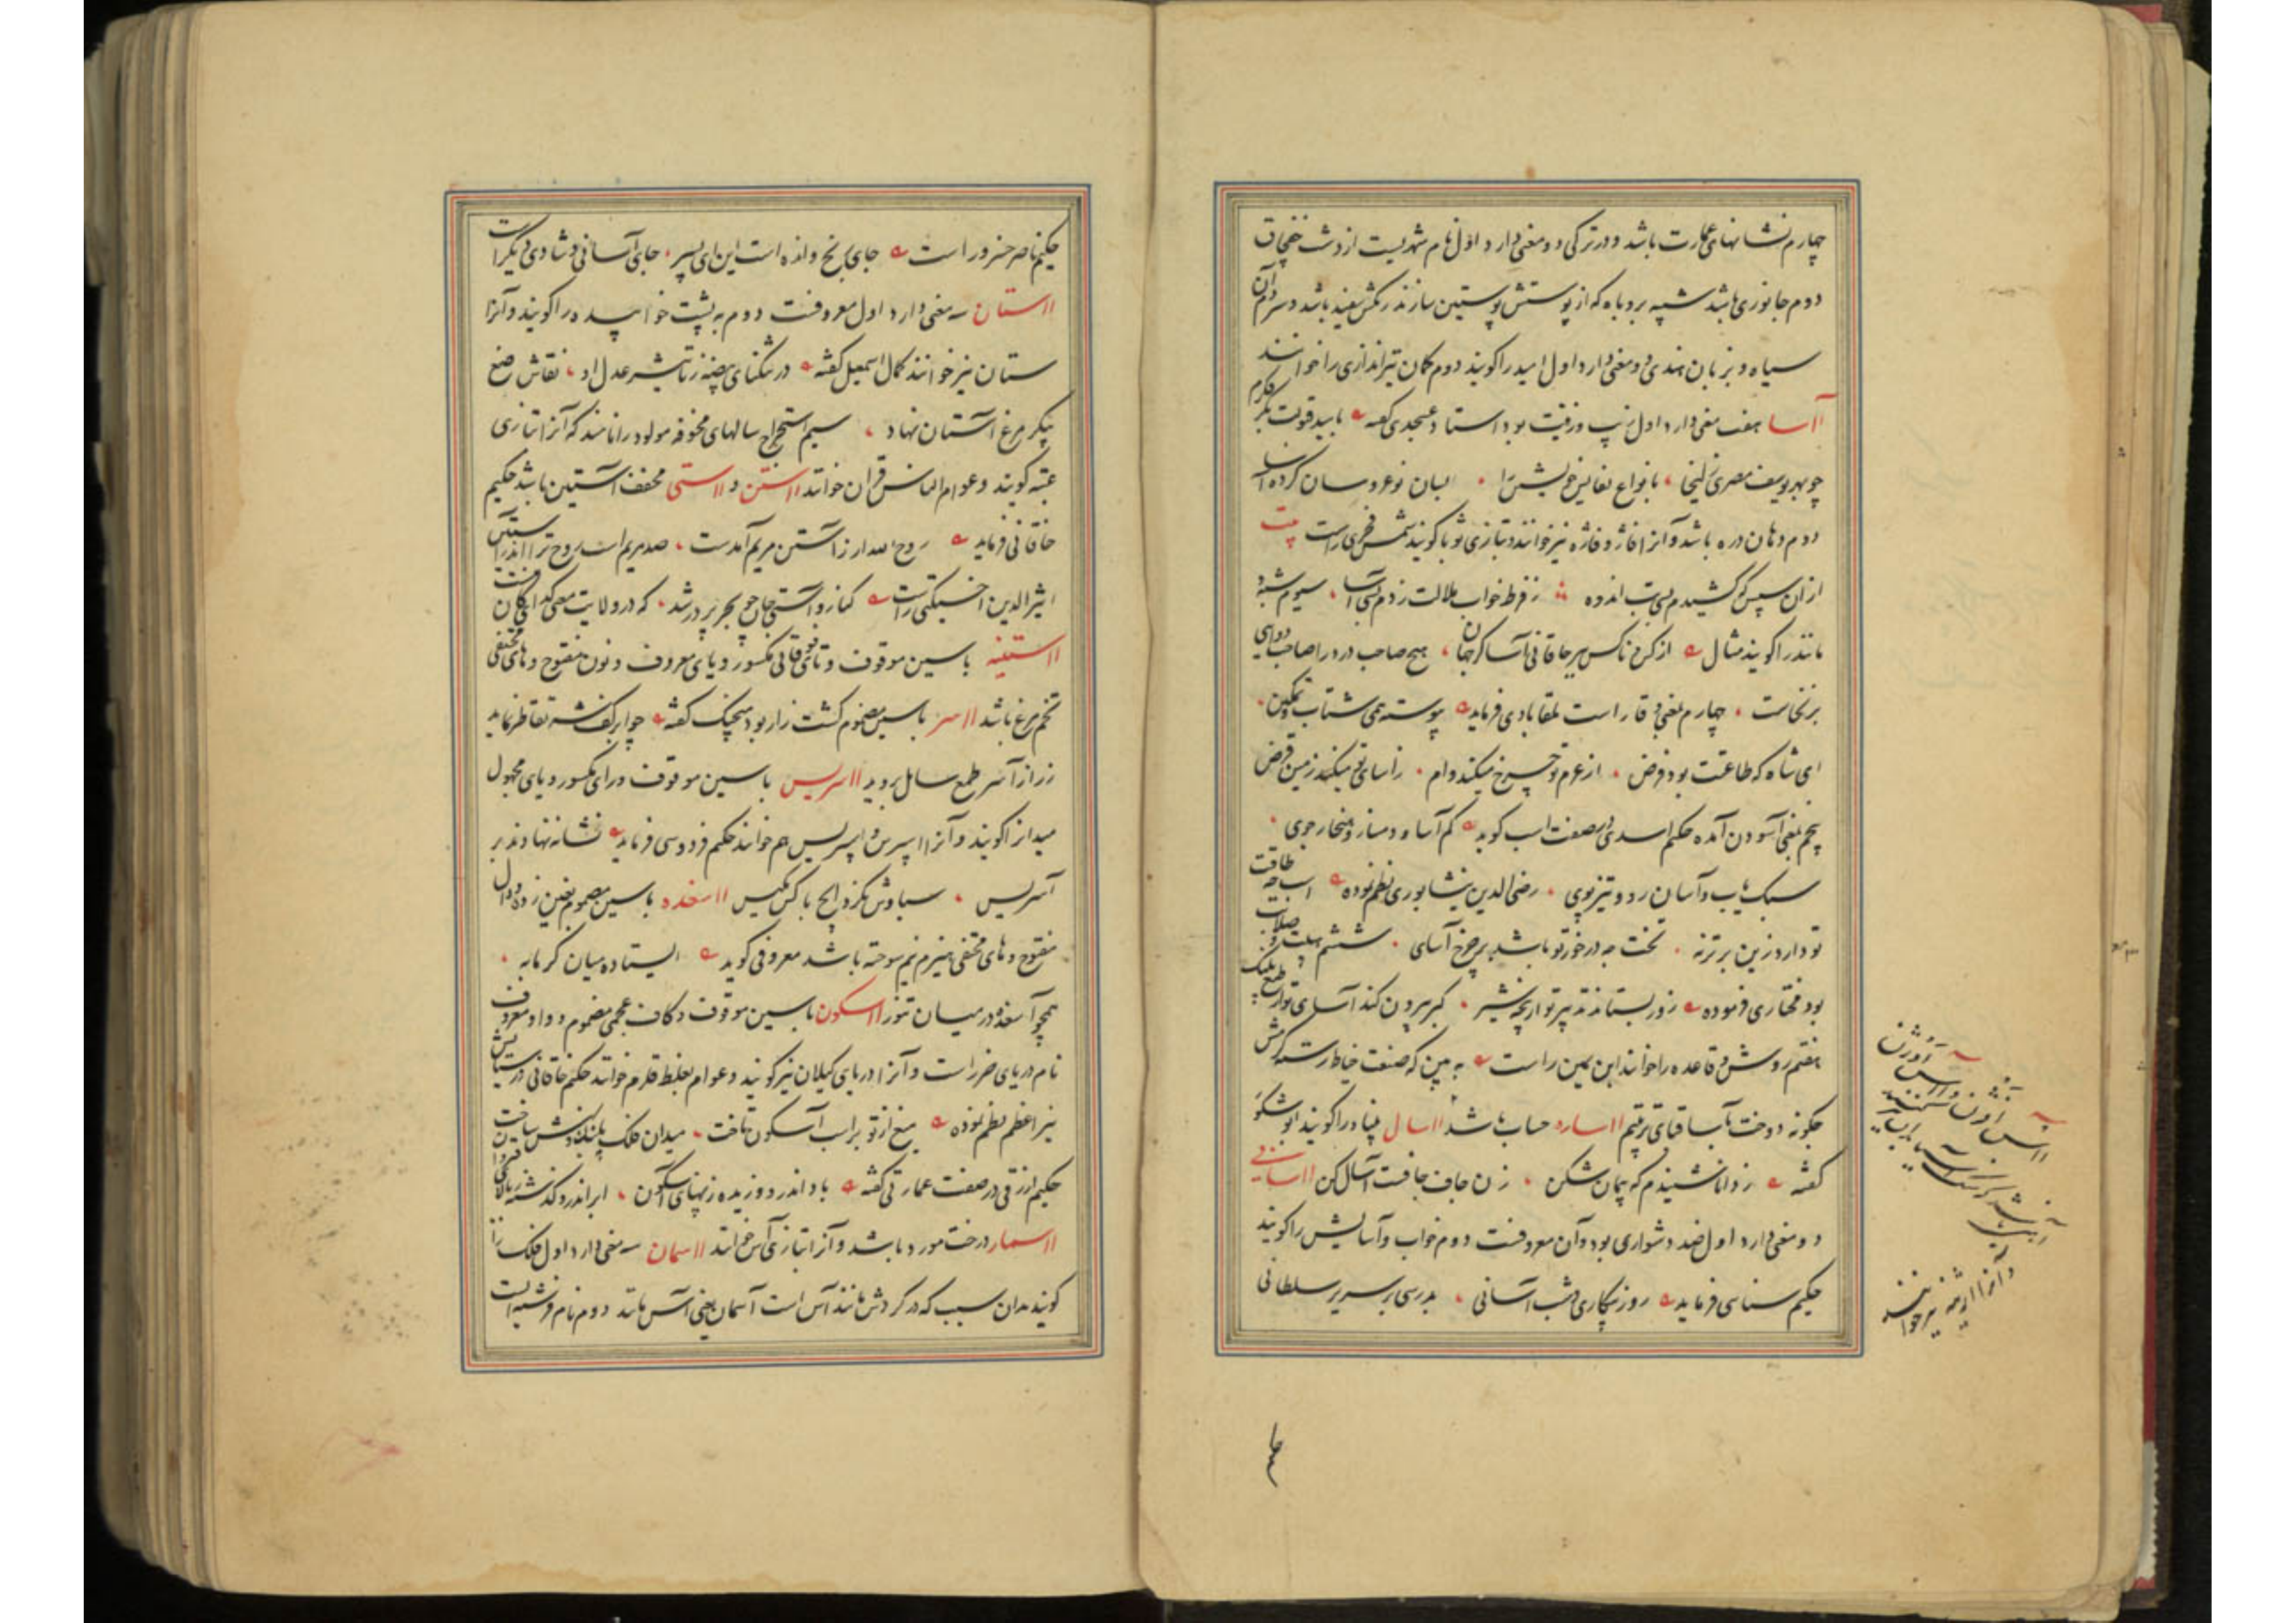 چهارم نشانهای عمارت باشد و در ترکی دو معنی دارد اول نام شهریست از دشت خفچاق
دوم جانوری باشد شبیه بروباه که از پوستش پوستین سازند رنگش سفید باشد و سر دم آن
سیاه و بزبان هندی دو معنی دارد اول امید را گویند دوم کمان تیراندازی را خوانند
اآسا هفت معنی دارد اول زیب و زینت بود استاد عسجدی گفته
چو بهر یوسف مصری زلیخا بانواع نفایس خویشتن را بسان نوعروسان کرده آسا
دوم دهان دره باشد و آنرا فاژ و فاژه نیز خوانند و بتازی ثوبا گویند شمس فخری راست بیت
ازان سپس که کشیدم بسی تب اندوه ز فرط خواب ملالت زدم بسی آسا سیوم شبه و
مانند را گویند مثال از کرم ناکس مر خاقانی آسا کر جهان هیچ صاحب درد را صاحب دوایی
برنخاست چهارم بمعنی وقار است لمقابادی فرماید پیوسته همی شتاب و تمکین
ای شاه که طاعتت بود فرض از عزم تو چرخ میکند وام ز آسای تو میکند زمین قرض
پنجم بمعنی آسودن آمده حکیم اسدی در صفت اسب گوید کم آسا و دمساز و هنجار جوی
سبک یاب و آسان رو و تیز پوی رضی الدین نیشابوری نظم نموده اسب چه طاقت
تو دارد زین بر تر نه تخت چه در خور تو باشد بر چرخ آسای ششم هیبت و صلابت
بود مختاری فرموده زور بستاند تدبیر تو از پنجه شیر کبر بیرون کند آسای تو از طبع پلنگ
هفتم روش و قاعده را خوانند ابن یمین راست به بین که صنعت خیاط رسته کرمش
چگونه دوخت بآسا قبای ترتیم ااساره حساب باشد ااسال بنیاد را گویند ابو شکور
گفته ز دانا شنیدم که پیمان شکن زن جاف جافست آسال کن ااسانی
دو معنی دارد اول ضد دشواری بود و آن معروفست دوم خواب و آسایش را گویند
حکیم سنایی فرماید روز بیکاری و شب آسانی بدرسی بر سریر سلطانی
و آنرا نیز خوانند
حکیم ناصر خسرو راست جای رنج و انده است این ای پسر جای آسانی و شادی دیگر است
ااستان سه معنی دارد اول معروفست دوم به پشت خوابیده را گویند و آنرا
ستان نیز خوانند کمال اسمعیل گفته در تنگنای بیضه ز تاثیر عدل او نقاش صنع
پیکر مرغ آستان نهاد سیم استخراج سالهای مخوفه مولود را نامند که آنرا بتازی
عتبه گویند و عوام الناس قران خوانند ااستن و ااستی مخفف آستین باشد حکیم
خاقانی فرماید روح الله ار ز آستن مریم آمدست صد مریم است روح ترا اندر آستین
اثیر الدین اخسیکتی راست کنار و آستی جان چو بحر پر در شد که در ولایت معنی گدای کان
ااستینه باسین موقوف و تای فوقانی مکسور و یای معروف و نون مفتوح و های مختفی
تخم مرغ باشد ااسر باسین مضموم کشت زار بود منجیک گفته چو ابر کف شه تقاطر نماید
زر از آسر طمع سایل بروید ااسریس باسین موقوف و رای مکسور و یای مجهول
میدانرا گویند و آنرا اسپرس و اسپریس هم خوانند حکیم فردوسی فرماید نشانه نهادند بر
آسریس سیاوش نکرد ایچ با کس مکیس ااسغده باسین مضموم بغین زده و دال
مفتوح و های مختفی هیزم نیم سوخته باشد معروفی گوید ایستاده میان گرمابه
همچو آسغده در میان تنور ااسکون باسین موقوف و کاف عجمی مضموم و واو معروف
نام دریای خزر است و آنرا دریای گیلان نیز گویند و عوام بغلط قلزم خوانند حکیم خاقانی در ستایش
نیر اعظم نظم نموده میغ از تو بر اسب آسکون تاخت
حکیم ازرقی در صفت عمارتی گفته باد اندر و وزیده ز پهنای آسکون ابر اندرو گذشته ز بالای قیروان
ااسمار درخت مورد باشد و آنرا بتازی آس خوانند ااسمان سه معنی دارد اول فلک را
گویند بدان سبب که در گردش مانند آس است آسمان یعنی آس مانند دوم نام فرشته ایست